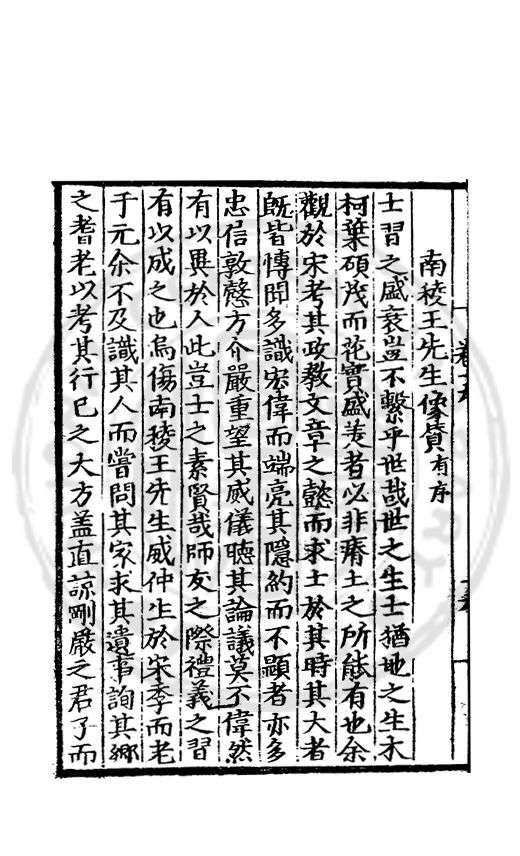 南稜王先生像贊有序
士習之盛衰豈不繫乎世哉世之生士猶地之生木
柯葉碩茂而花實盛美者必非瘠土之所能有也余
觀於宋考其政教文章之懿而求士於其時其大者
既皆博聞多識宏偉而端亮其隱約而不顯者亦多
忠信敦愨方介嚴重望其威儀聽其論議莫不偉然
有以異於人此豈士之素賢哉師友之際禮義之習
有以成之也烏傷南稜王先生威仲生於宋季而老
于元余不及識其人而嘗問其家求其遺事詢其鄉
之耆老以考其行己之大方盖直諒剛嚴之君子而